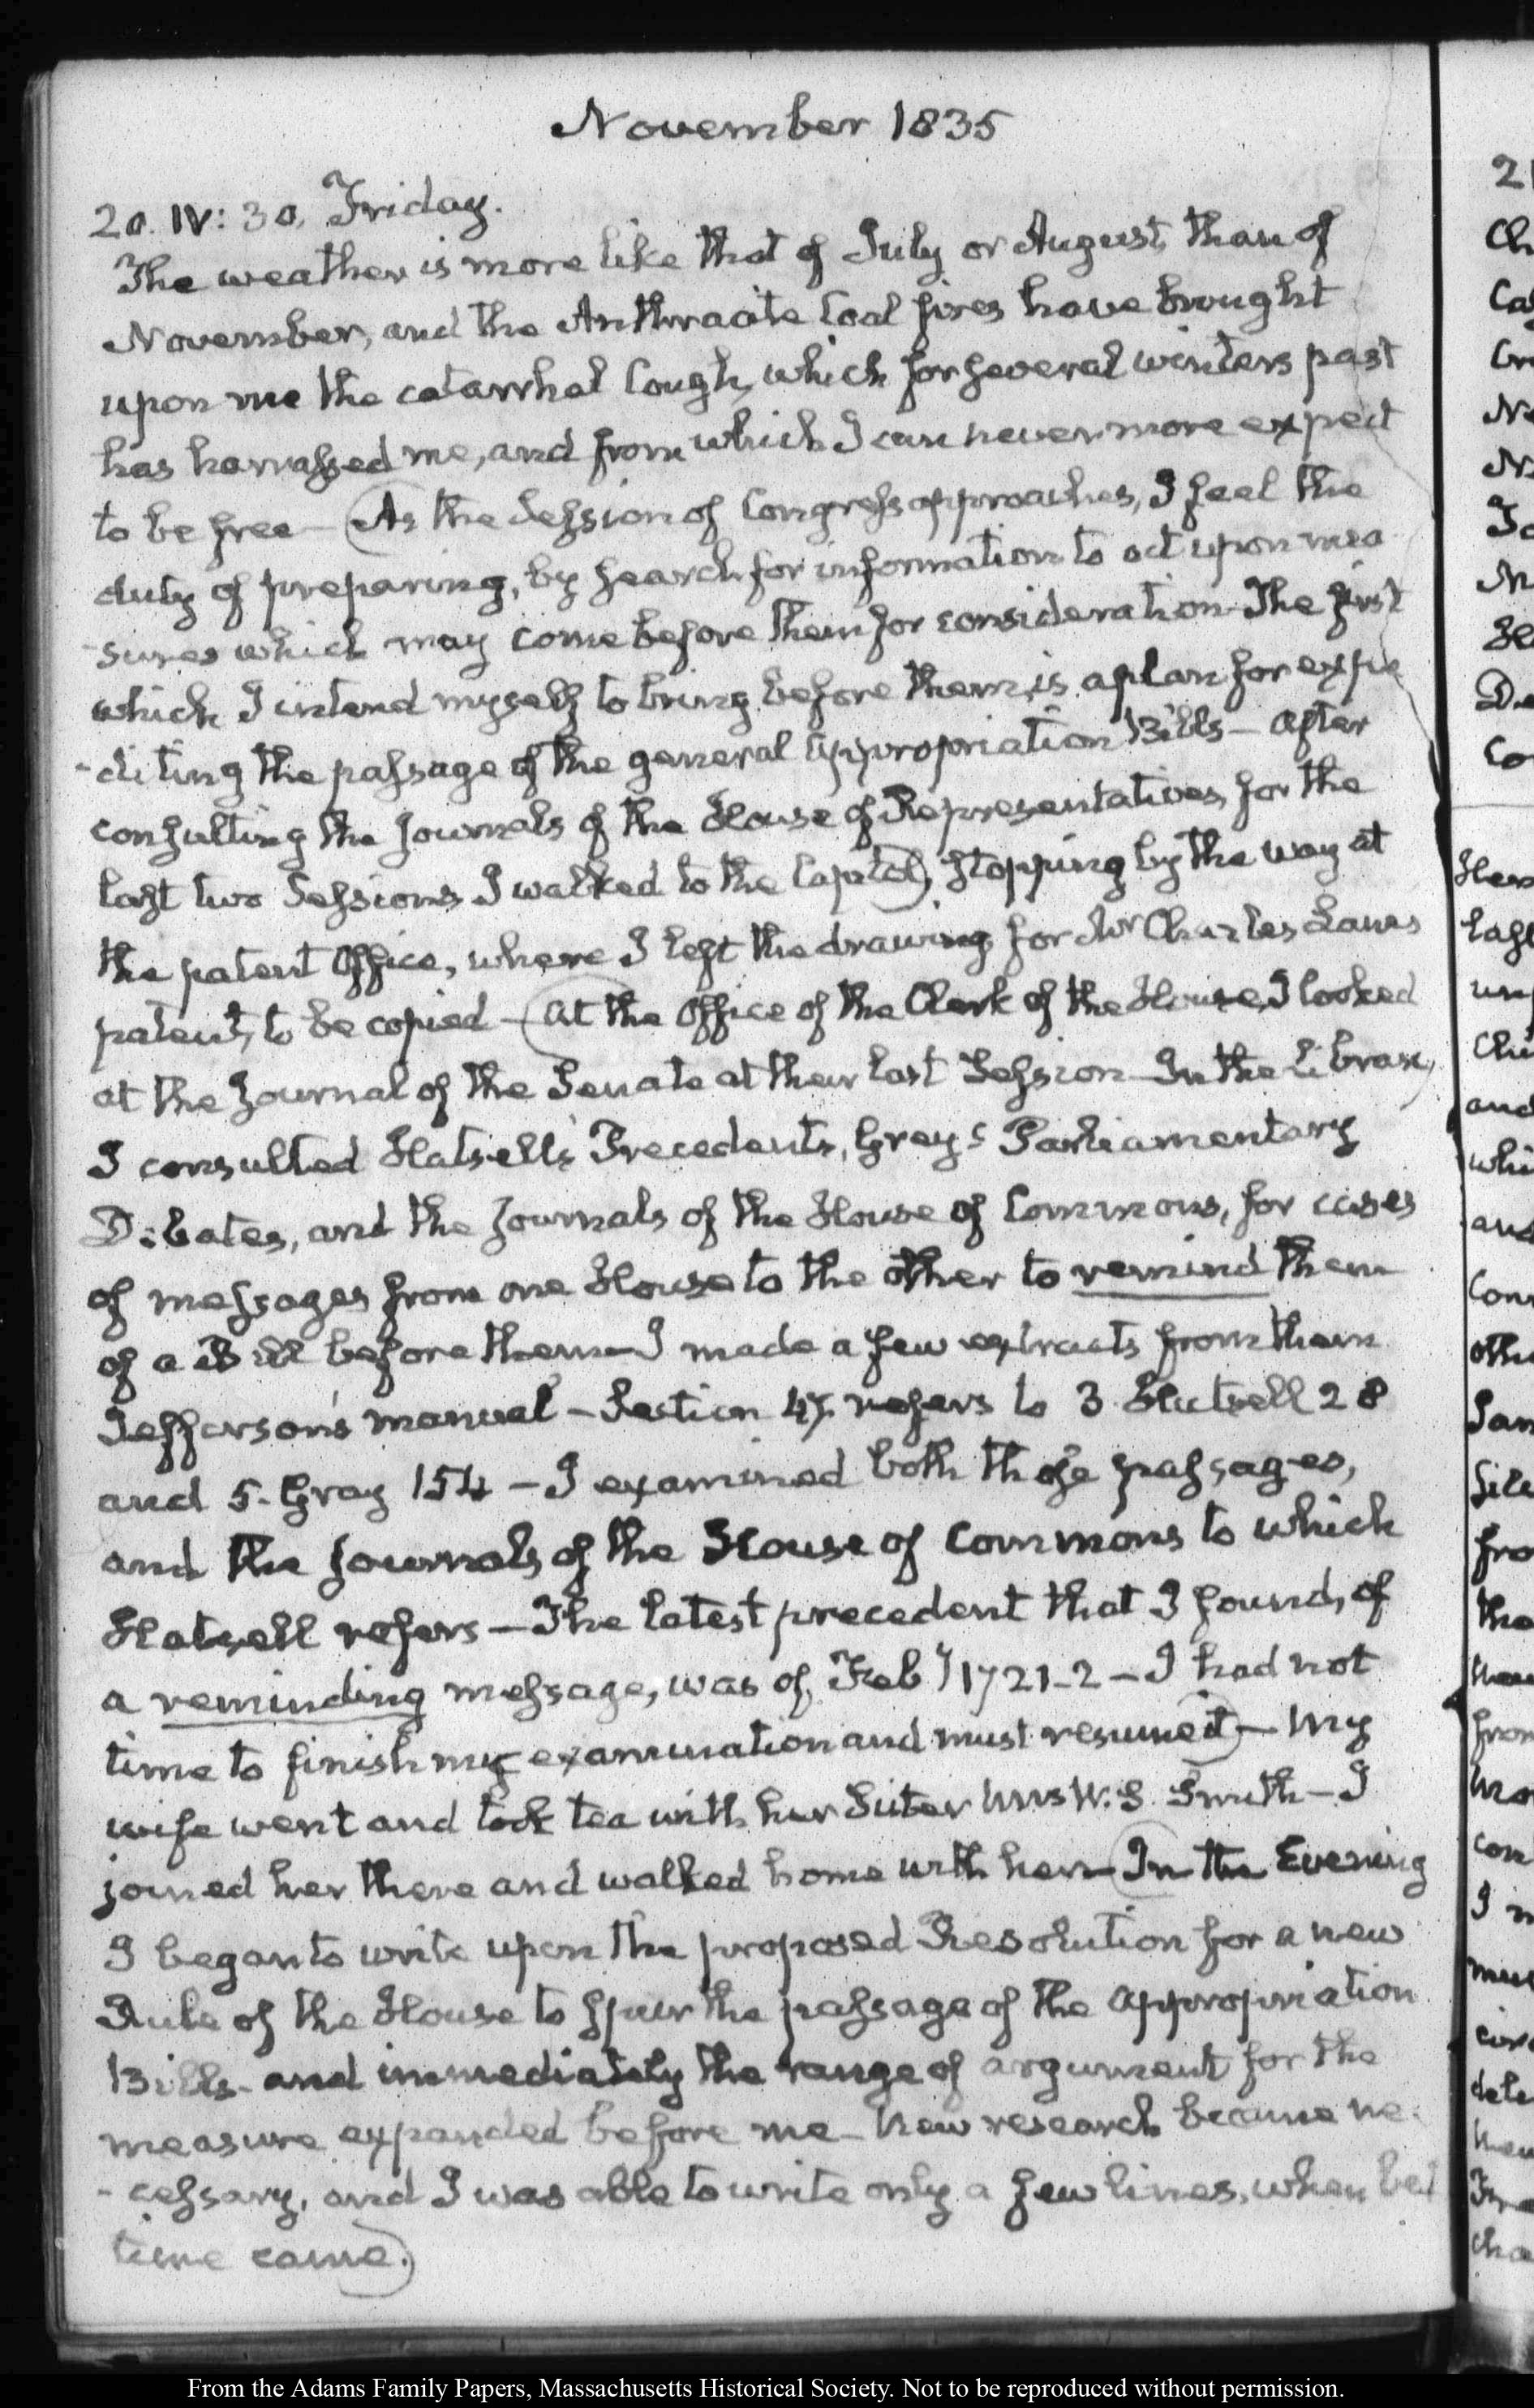 November 1835
20. IV: 30. Friday.
The weather is more like that of July or August, than of
November, and the Anthracite Coal fires have brought
upon me the catarrhal Cough, which for several winters past
has harrassed me, and from which I can never more expect
to be free – (As the Session of Congress approaches, I feel the
duty of preparing, by search for information to act upon mea
-sures which may come before them for consideration – The first
which I intend myself to bring before them, is a plan for expe
-diting the passage of the general appropriation Bills – after
consulting the Journals of the House of Representatives, for the
last two Sessions I walked to the Capitol), stopping by the way at
the patent Office, where I left the drawing for Mr Charles Lanes
patent, to be copied – (At the Office of the Clerk of the House, I looked
at the Journal of the Senate at their last Session – In the Library
I consulted Hatsell's Precedents, Grey's Parliamentary
Debates, and the Journals of the House of Commons, for cases
of messages from one House to the other to remind them
of a Bill before them – I made a few extracts from them
Jefferson's manual – Section 47. refers to 3 Hatsell 28
and 5. Gray 154 – I examined both those passages,
and the Journals of the House of Commons to which
Hatsell refers – The latest precedent that I found, of
a reminding message, was of, Feby 1721-2 – I had not
time to finish my examination and must resume it) – My
wife went and took tea with her Sister Mrs W. S. Smith – I
joined her there and walked home with her – (In the Evening
I began to write upon the proposed Resolution for a new
Rule of the House to spur the passage of the appropriation
Bills – and immediately the range of argument for the
measure expanded before me – New research became ne-
-cessary, and I was able to write only a few lines, when bed
time came.)
2
Ch
Ca
Cr
No
Co
last
Chi
and
whi
and
Con
othe
fro
tha
from
con
I
dele
cha
From the Adams Family Papers, Massachusetts Historical Society. Not to be reproduced without permission.